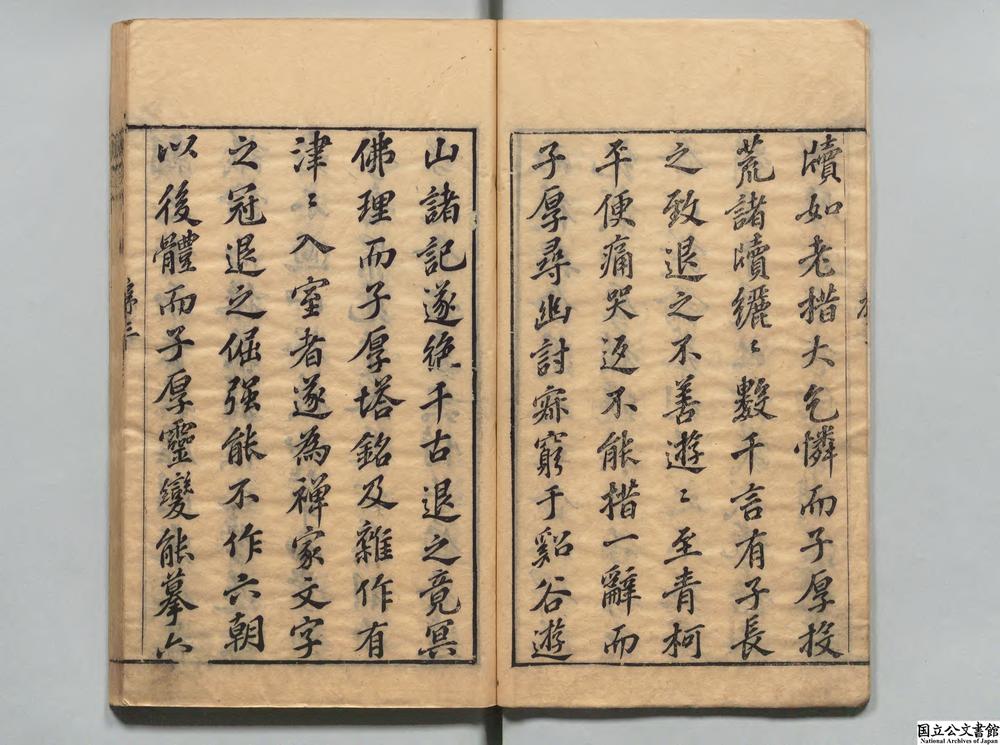 牘如老措大乞憐而子厚投
荒諸牘纚〻數千言有子長
之致退之不善遊〻至青柯
平便痛哭返不能措一辭而
子厚尋幽討寂窮于谿谷遊
山諸記遂絶千古退之竟冥
佛理而子厚塔銘及雜作有
津〻入室者遂為禅家文字
之冠退之倔强能不作六朝
以後體而子厚靈變能摹六
序三
国立公文書館
National Archives of Japan